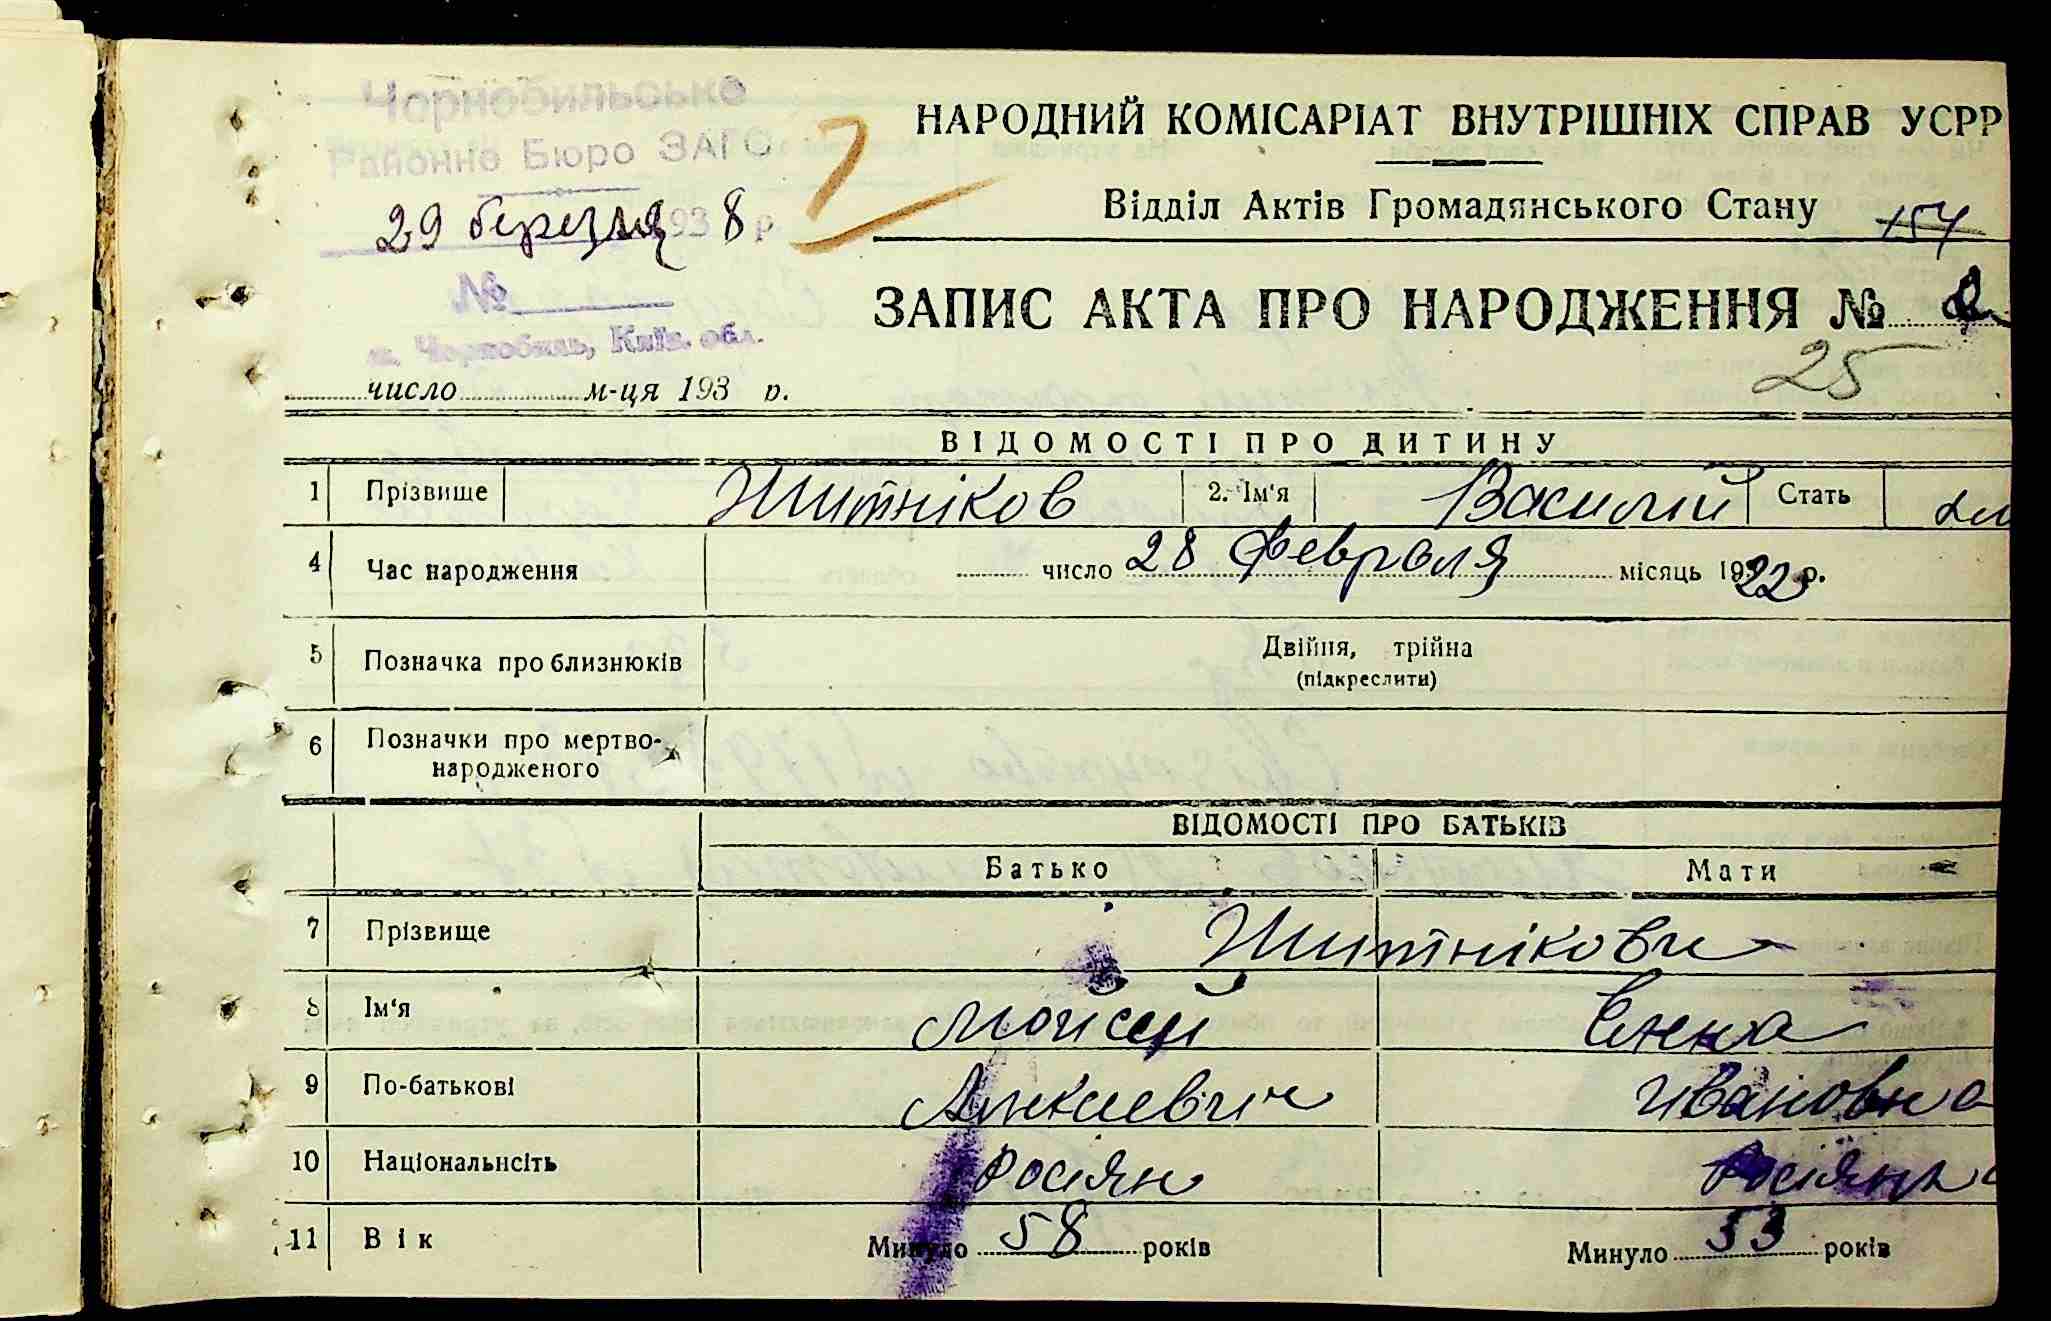 Чорнобильське
НАРОДНИЙ КОМІСАРІАТ ВНУТРІШНІХ СПРАВ УСРР
Районне Бюро ЗАГС
Відділ Актів Громадянського Стану 154
29 березня 1938 р.
№
ЗАПИС АКТА ПРО НАРОДЖЕННЯ № 2
м. Чорнобиль, Київ. обл.
25
число м-ця 193 р.
ВІДОМОСТІ ПРО ДИТИНУ
1 Прізвище Житніков 2. Ім'я Василій Стать
4 Час народження число 28 февроля місяць 1922 р.
5 Позначка про близнюків Двійня, трійна
(підкреслити)
6 Позначки про мертво-
народженого
ВІДОМОСТІ ПРО БАТЬКІВ
Батько Мати
7 Прізвище Житнікови
8 Ім'я Мойсей Енна
9 По-батькові Ивановна
10 Національнсіть Росіян Росіянка
11 Вік Минуло 58 років Минуло 53 років